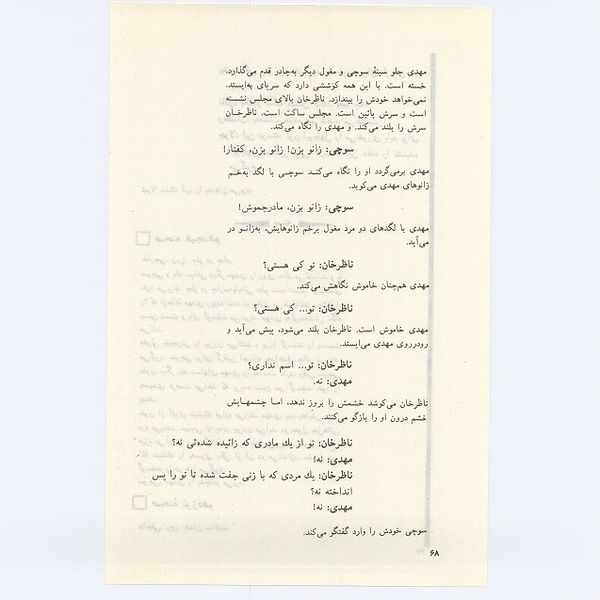 مهدی جلو سینهٔ سوچی و مغول دیگر به‌چادر قدم می‌گذارد.
خسته است. با این همه کوششی دارد که سرپای به‌ایستد.
نمی‌خواهد خودش را بیندازد. ناظرخان بالای مجلس نشسته
است و سرش پائین است. مجلس ساکت است. ناظرخان
سرش را بلند می‌کند. و مهدی را نگاه می‌کند.
سوچی: زانو بزن! زانو بزن، کفتار!
مهدی برمی‌گردد او را نگاه می‌کند سوچی با لگد به‌خم
زانوهای مهدی می‌کوبد.
سوچی: زانو بزن، مادرجموش!
مهدی با لگدهای دو مرد مغول برخم زانوهایش، به‌زانو در
می‌آید.
ناظرخان: تو کی هستی؟
مهدی هم‌چنان خاموش نگاهش می‌کند.
ناظرخان: تو... کی هستی؟
مهدی خاموش است. ناظرخان بلند می‌شود، پیش می‌آید و
رودرروی مهدی می‌ایستد.
ناظرخان: تو... اسم نداری؟
مهدی: نه.
ناظرخان می‌کوشد خشمش را بروز ندهد، اما چشمهایش
خشم درون او را بازگو می‌کنند.
ناظرخان: تو از یك مادری که زائیده شده‌ئی نه؟
مهدی: نه!
ناظرخان: یك مردی که با زنی جفت شده تا تو را پس
انداخته نه؟
مهدی: نه!
سوچی خودش را وارد گفتگو می‌کند.
۶۸